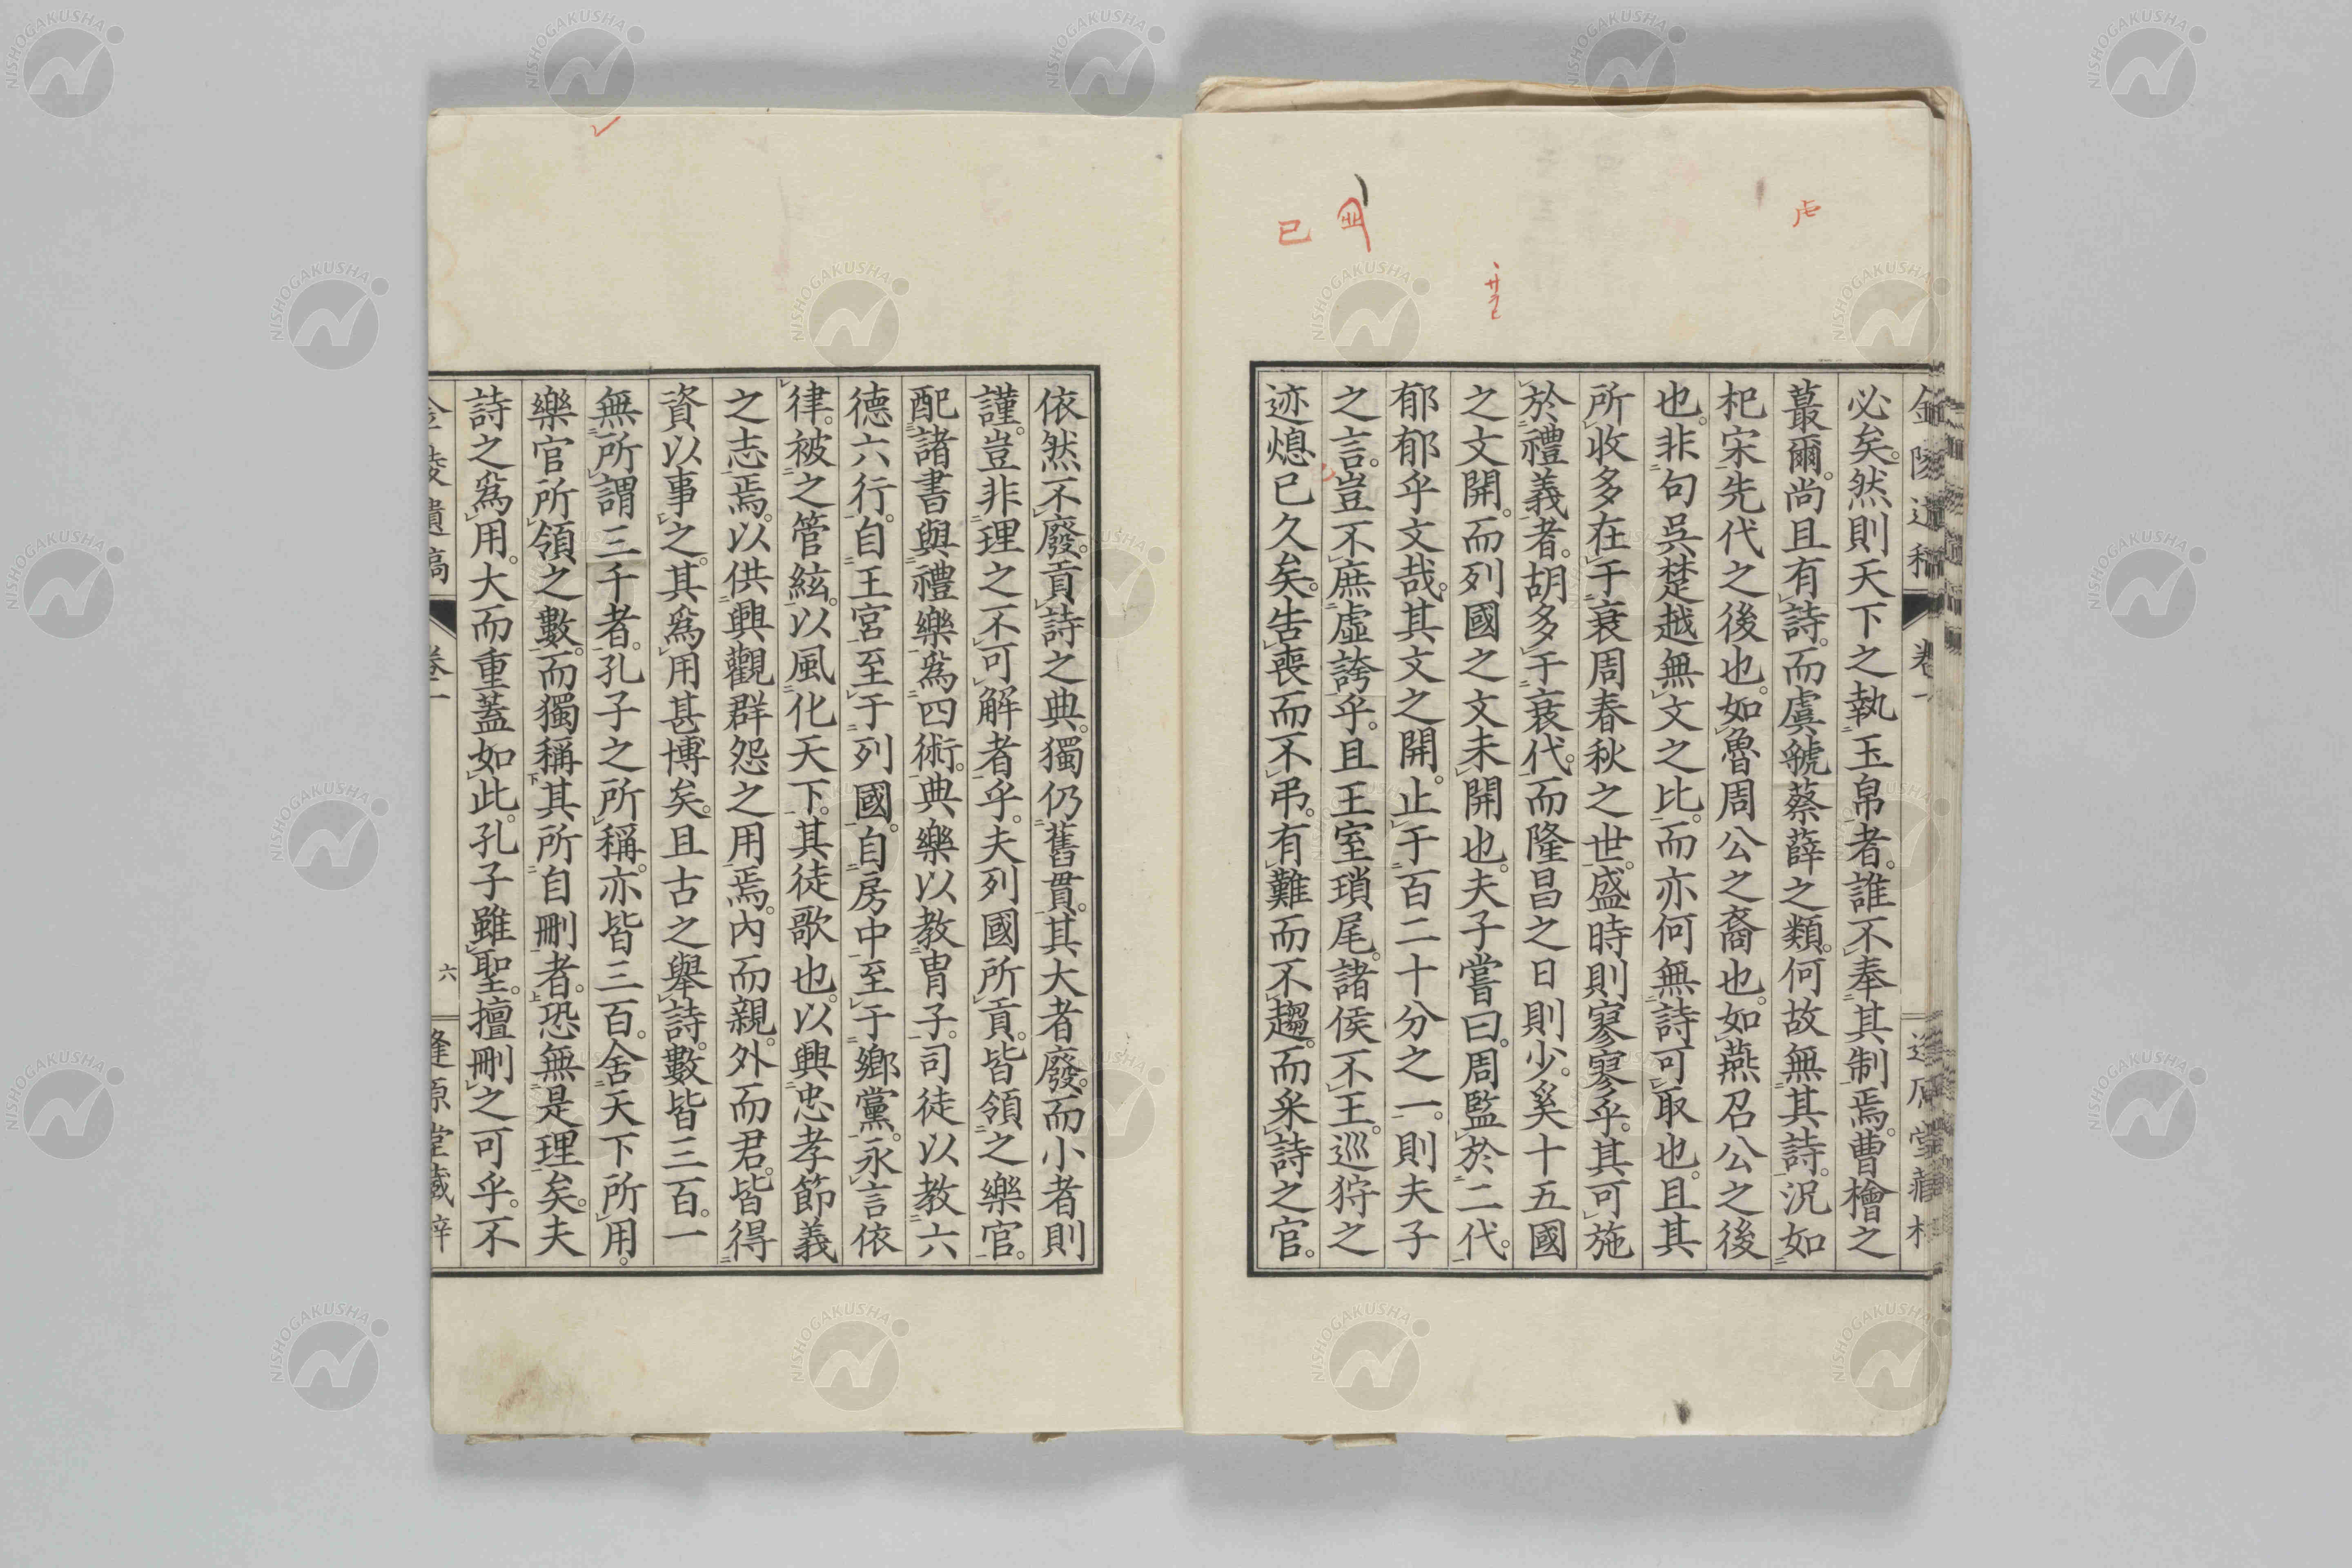 必矣。然則天下之執玉帛者。誰不奉其制焉。曹檜之
蕞爾。尚且有詩。而虞虢蔡薛之類。何故無其詩。況如
杞宋先代之後也。如魯周公之裔也。如燕召公之後
也。非句吳楚越無文之比。而亦何無詩可取也。且其
所收多在于衰周春秋之世。盛時則寥寥乎。其可施
於禮義者。胡多于衰代。而隆昌之日則少。奚十五國
之文開。而列國之文未開也。夫子嘗曰。周監於二代。
郁郁乎文哉。其文之開。止于百二十分之一。則夫子
之言。豈不庶虛誇乎。且王室瑣尾。諸侯不王。巡狩之
迹熄已久矣。告喪而不弔。有難而不趨。而采詩之官。
依然不廢。貢詩之典。獨仍舊貫。其大者廢。而小者則
謹。豈非理之不可解者乎。夫列國所貢。皆領之樂官。
配諸書與禮樂爲四術。典樂以教冑子。司徒以教六
德六行。自王宮至于列國。自房中至于鄉黨。永言依
律。被之管絃。以風化天下。其徒歌也。以興忠孝節義
之志焉。以供興觀群怨之用焉。內而親。外而君。皆得
資以事之。其爲用甚博矣。且古之舉詩。數皆三百。一
無所謂三千者。孔子之所稱。亦皆三百。舍天下所用。
樂官所領之數。而獨稱其所自刪者。恐無是理矣。夫
詩之爲用。大而重蓋如此。孔子雖聖。擅刪之可乎。不
卷一
六
NISHOGAKUSHA